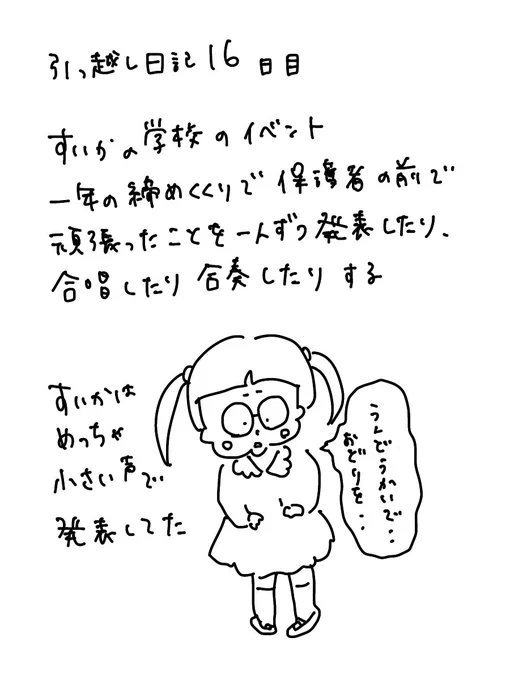 引っ越し日記16日目
すいかの学校のイベント
一年の締めくくりで保護者の前で
頑張ったことを一人ずつ発表したり、
合唱したり合奏したりする
すいかは
めっちゃ
小さい声で
発表してた
うんどうかいで・・
おどりを・・